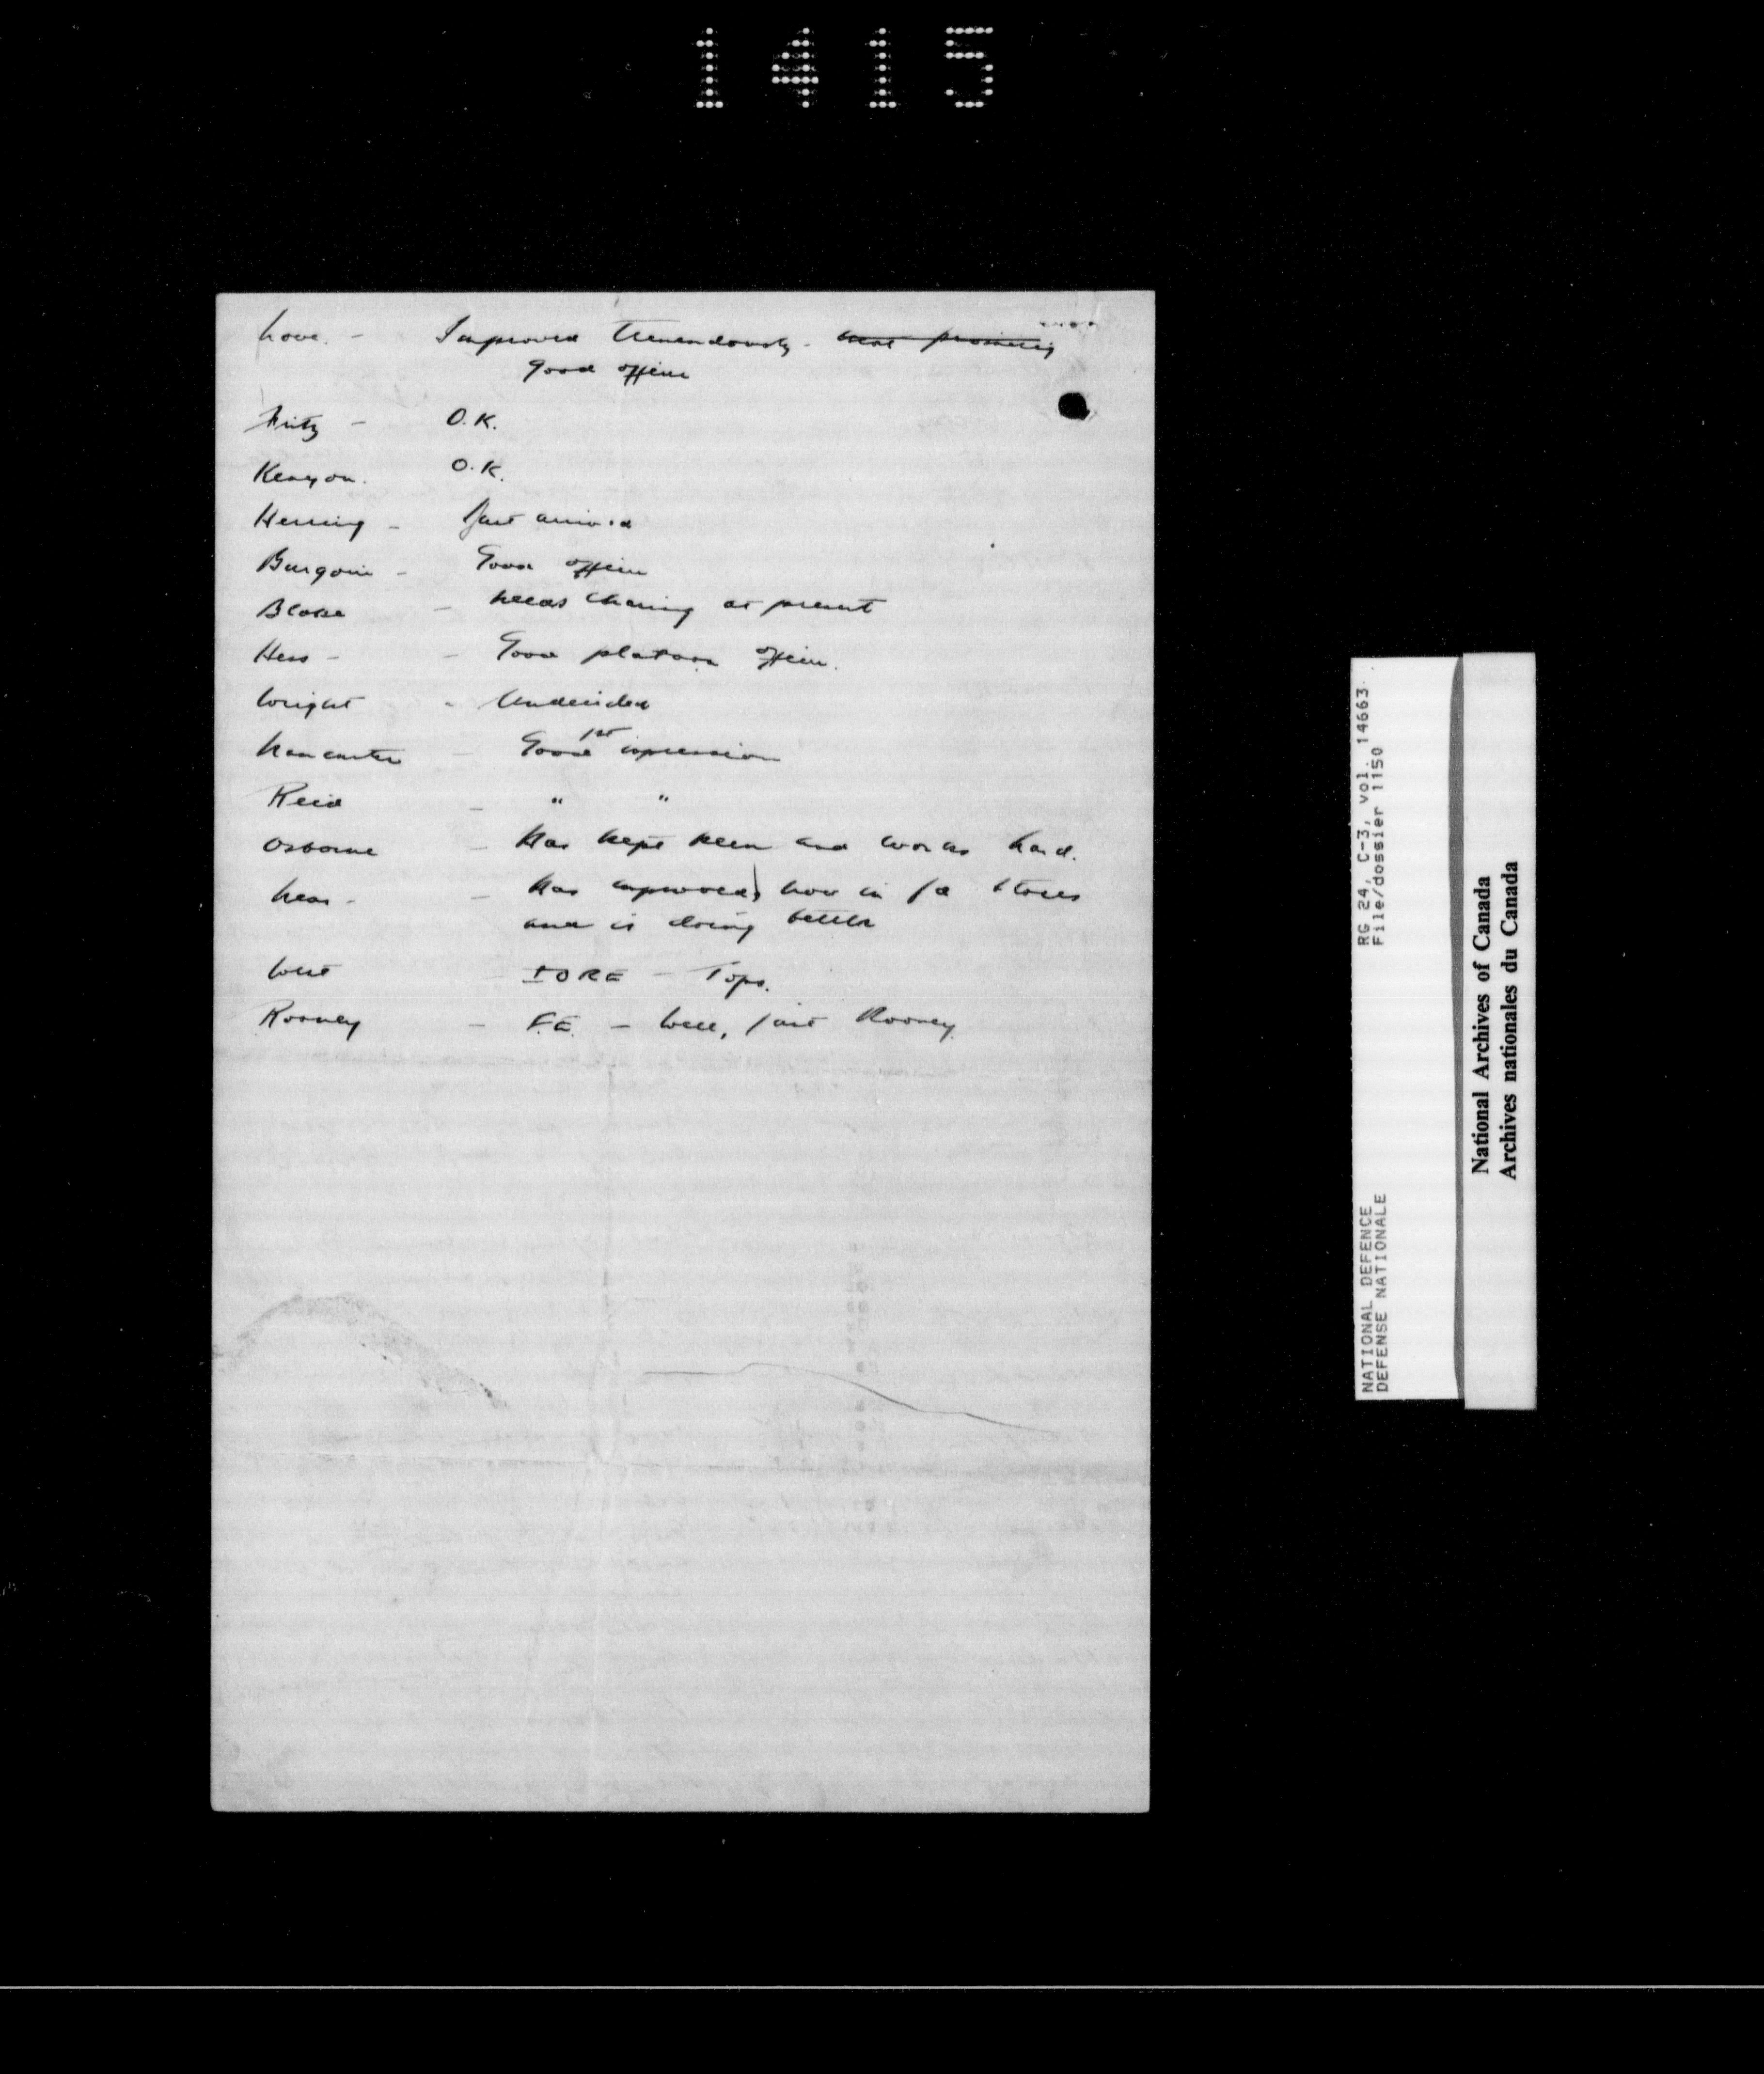 1415
Love. - Improved tremendously - most promising
Good officer
Fritz - O.K.
Kenyon. O.K.
Herring - Just arrived
Burgoin - Good officer
Blake - Needs chasing at present
Hess - - Good platoon officer.
Wright - Undecided
Lancaster - Good 1st impression
Reid - " "
Osborne - Has kept keen and works hard.
- Has improved, now in fd stores
and is doing better
West - IORE - Tops.
Rooney - F.E. - Well, just Rooney.
NATIONAL DEFENCE RG 24, C-3, vol. 14663
DEFENSE NATIONALE File/dossier 1150
National Archives of Canada
Archives nationales du Canada